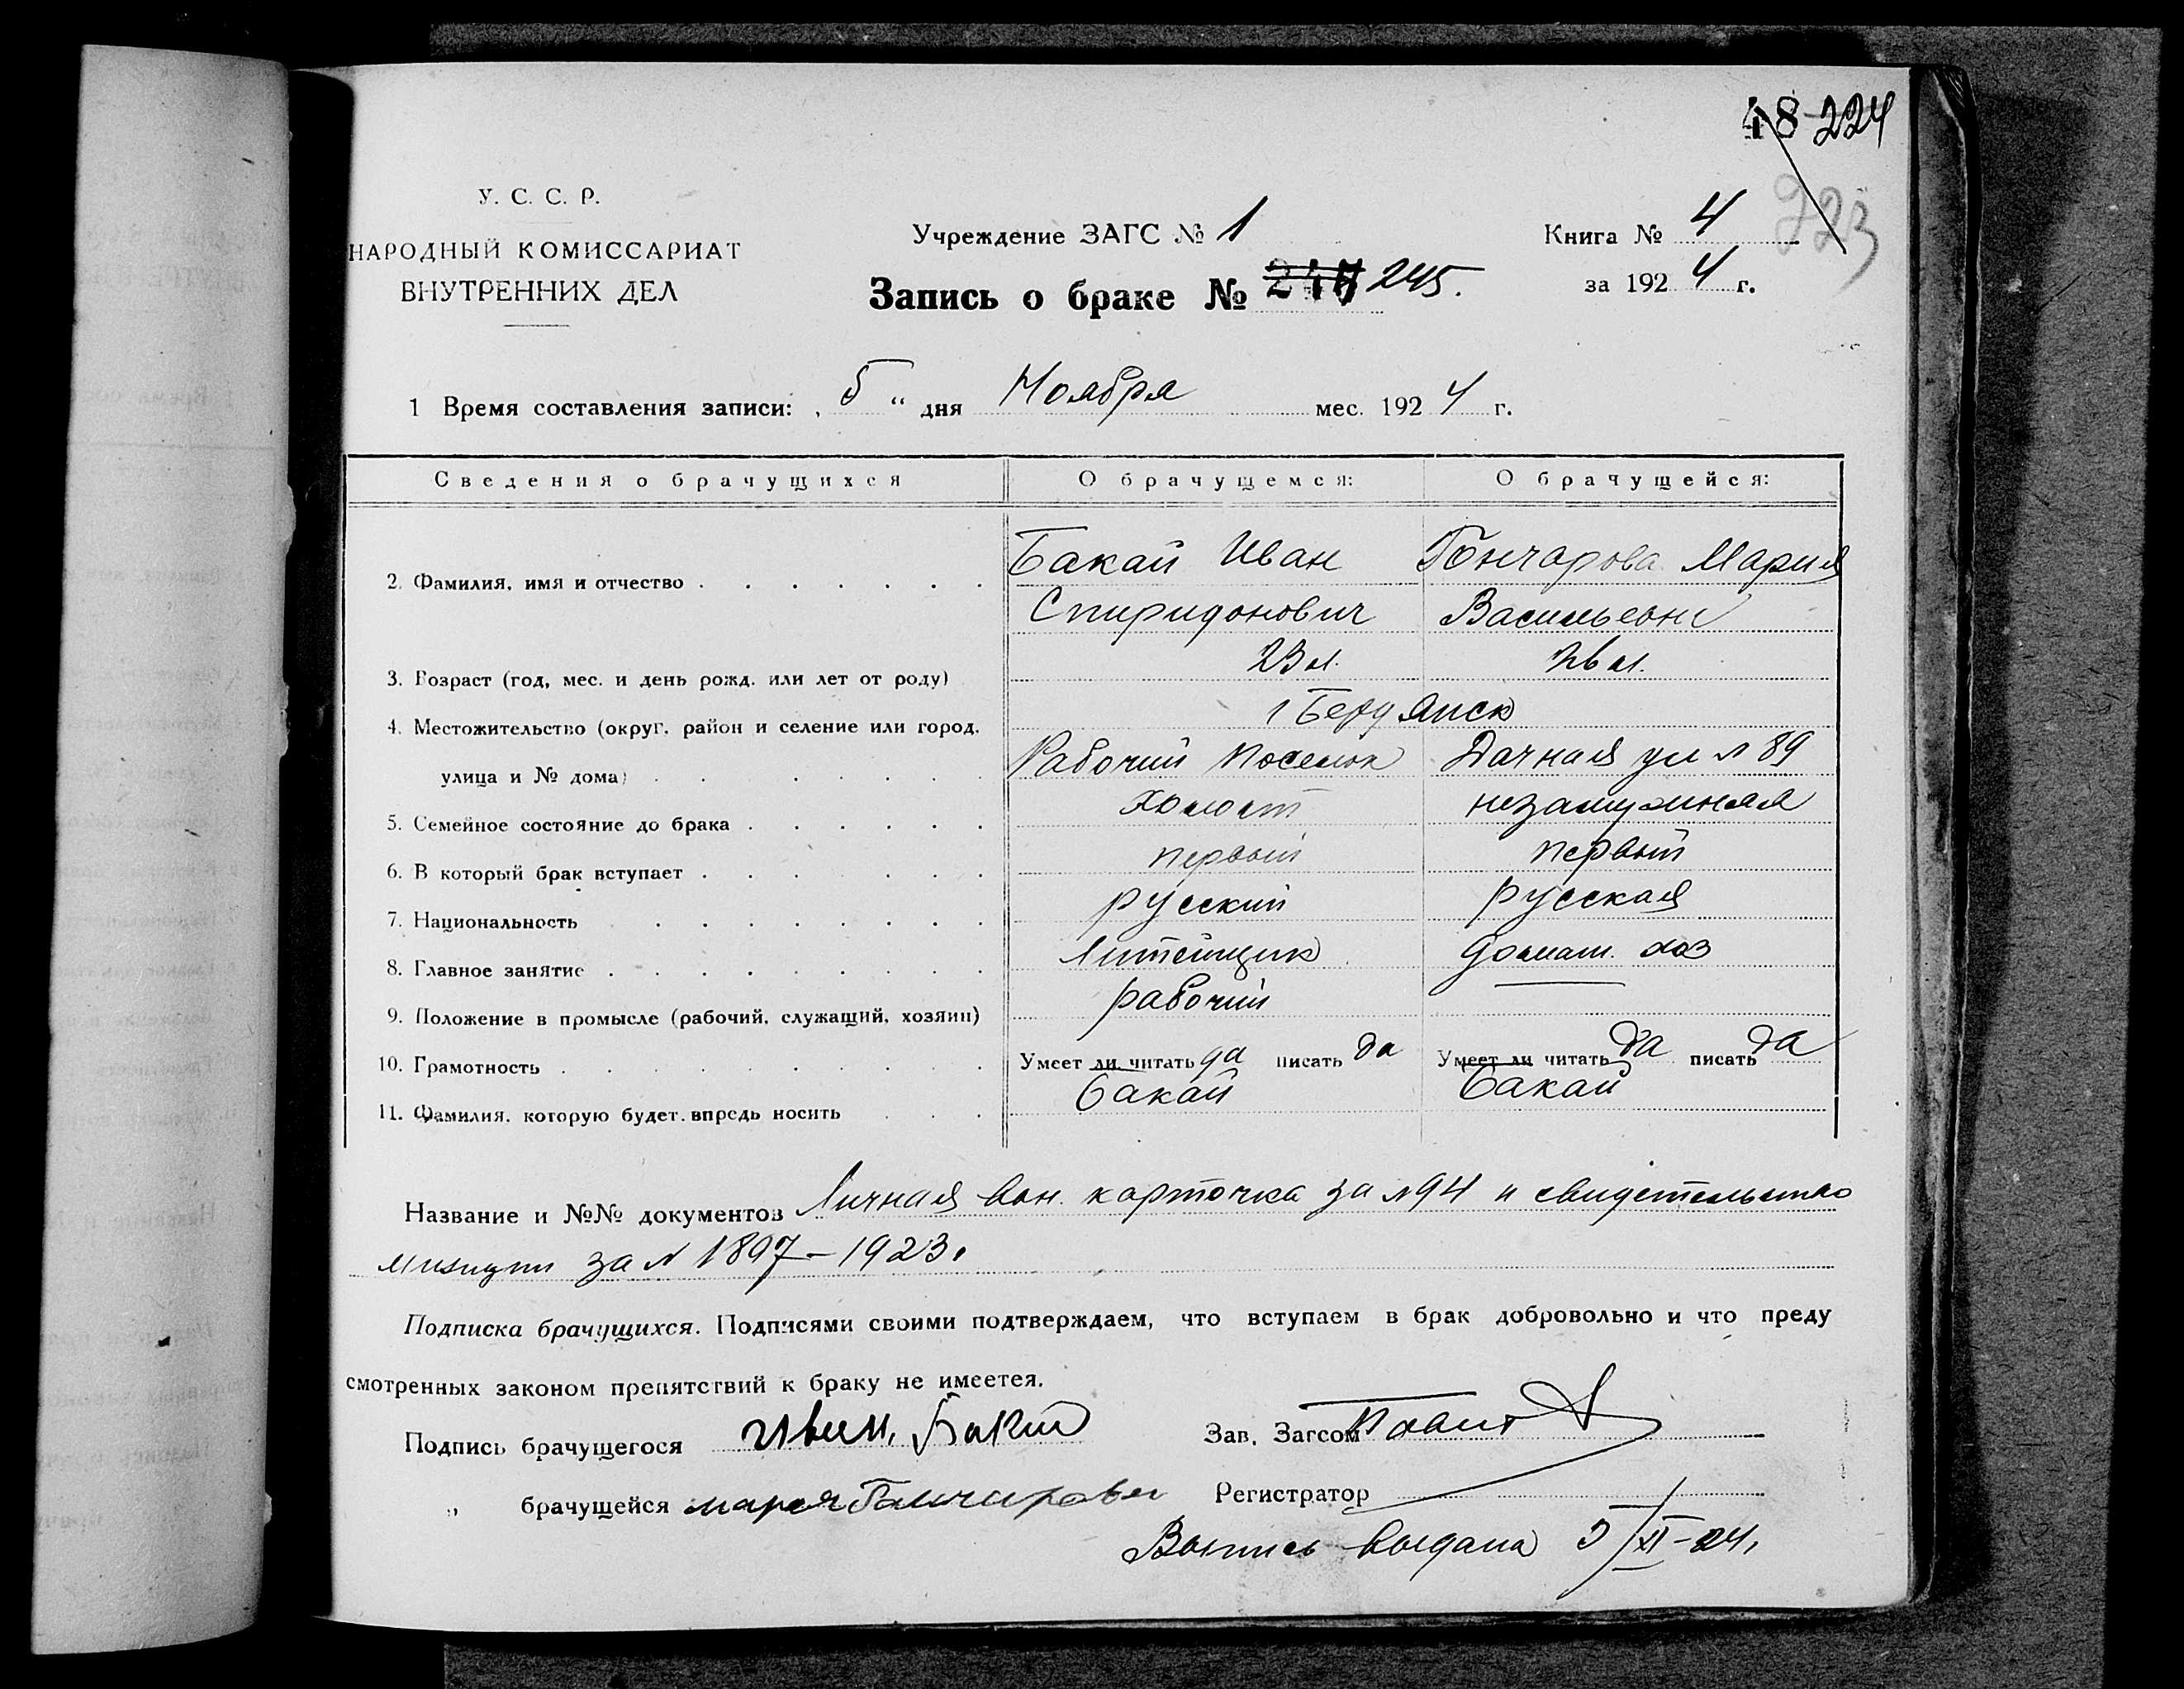 48 224
223
У. С. С. Р.
НАРОДНЫЙ КОМИССАРИАТ
ВНУТРЕННИХ ДЕЛ
Учреждение ЗАГС № 1
Книга № 4
Запись о браке № 245.
за 1924 г.
1 Время составления записи: „ 5 “ дня Ноября мес. 1924 г.
Сведения о брачущихся О брачущемся: О брачущейся:
2. Фамилия, имя и отчество Бакай Иван Гончарова Мария
Спиридонович Васильевн
3. Возраст (год, мес. и день рожд. или лет от роду) 23 л.
4. Местожительство (округ, район и селение или город, г Бердянск
улица и № дома) Рабочий Поселок Дачная ул № 89
5. Семейное состояние до брака холост незамужняя
6. В который брак вступает первый первый
7. Национальность русский русская
8. Главное занятие Литейщик домаш. хоз
9. Положение в промысле (рабочий, служащий, хозяин) рабочий —
10. Грамотность Умеет ли читать да писать да Умеет ли читать да писать да
11. Фамилия, которую будет впредь носить Бакай Бакай
Название и №№ документов Личная воин. карточка за № 94 и свидетельство
милиции за № 1897 – 1923.
Подписка брачущихся. Подписями своими подтверждаем, что вступаем в брак добровольно и что преду
смотренных законом препятствий к браку не имеется.
Подпись брачущегося Иван Бакай Зав. Загсом
„ брачущейся мария Ганчарова Регистратор
Выпись выдана 5/XI-24.